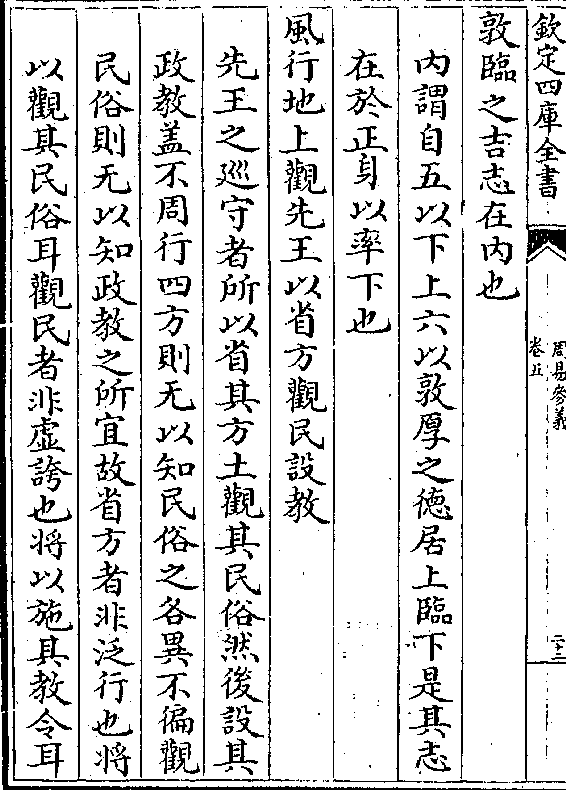 欽定四庫全書
周易參義
卷五
二十二
敦臨之吉志在内也
内謂自五以下上六以敦厚之徳居上臨下是其志
在於正身以率下也
風行地上觀先王以省方觀民設教
先王之廵守者所以省其方土觀其民俗然後設其
政教盖不周行四方則无以知民俗之各異不徧觀
民俗則无以知政教之所宜故省方者非泛行也将
以觀其民俗耳觀民者非虚誇也将以施其教令耳